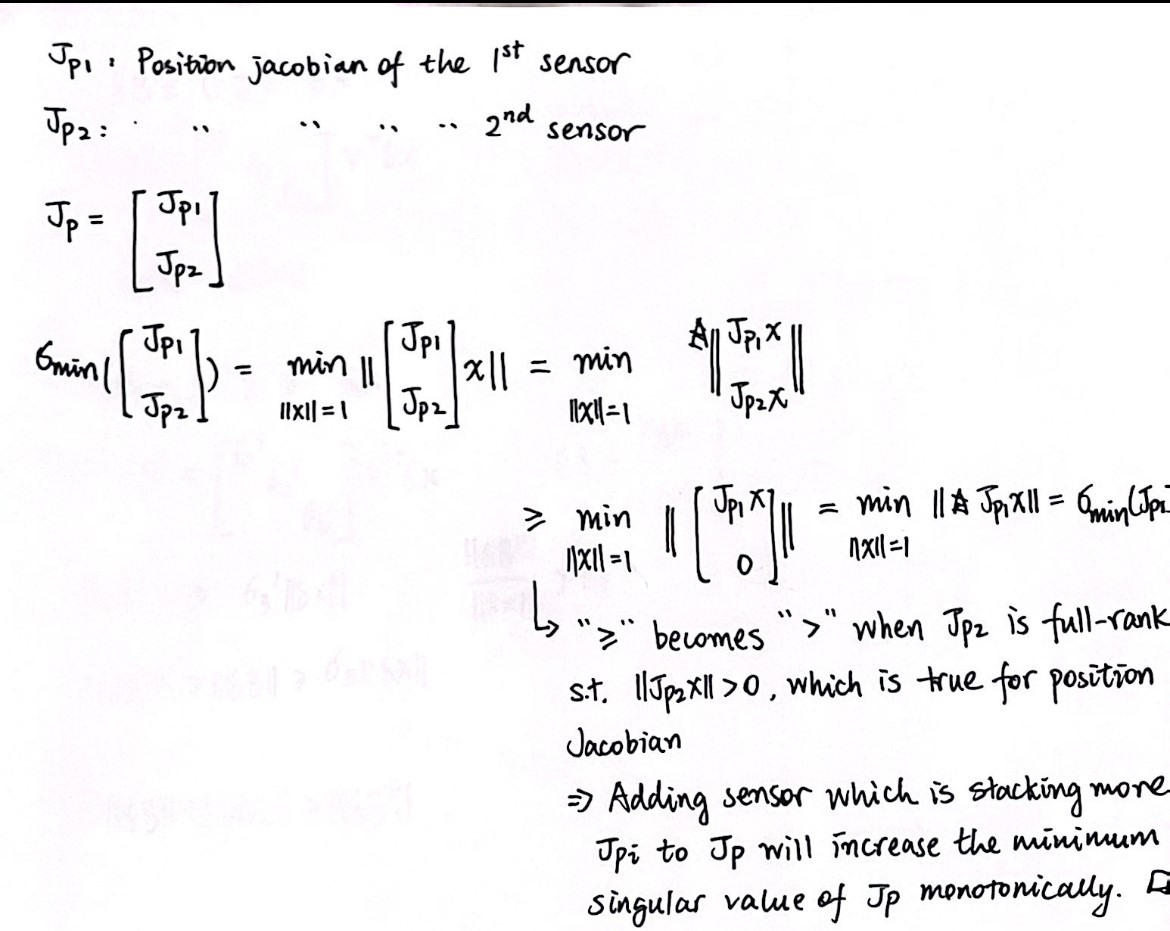 Jp1 : Position jacobian of the 1st sensor
Jp2 : " " " " 2nd sensor
Jp = [ Jp1 ; Jp2 ]
σmin([ Jp1 ; Jp2 ]) = min ||x||=1 || [ Jp1 ; Jp2 ] x || = min ||x||=1 || Jp1x ; Jp2x ||
≥ min ||x||=1 || [ Jp1x ; 0 ] || = min ||x||=1 || Jp1x || = σmin(Jp1
↳ "≥" becomes ">" when Jp2 is full-rank
s.t. ||Jp2x|| > 0, which is true for position
Jacobian
⇒ Adding sensor which is stacking more
Jpi to Jp will increase the minimum
singular value of Jp monotonically. □